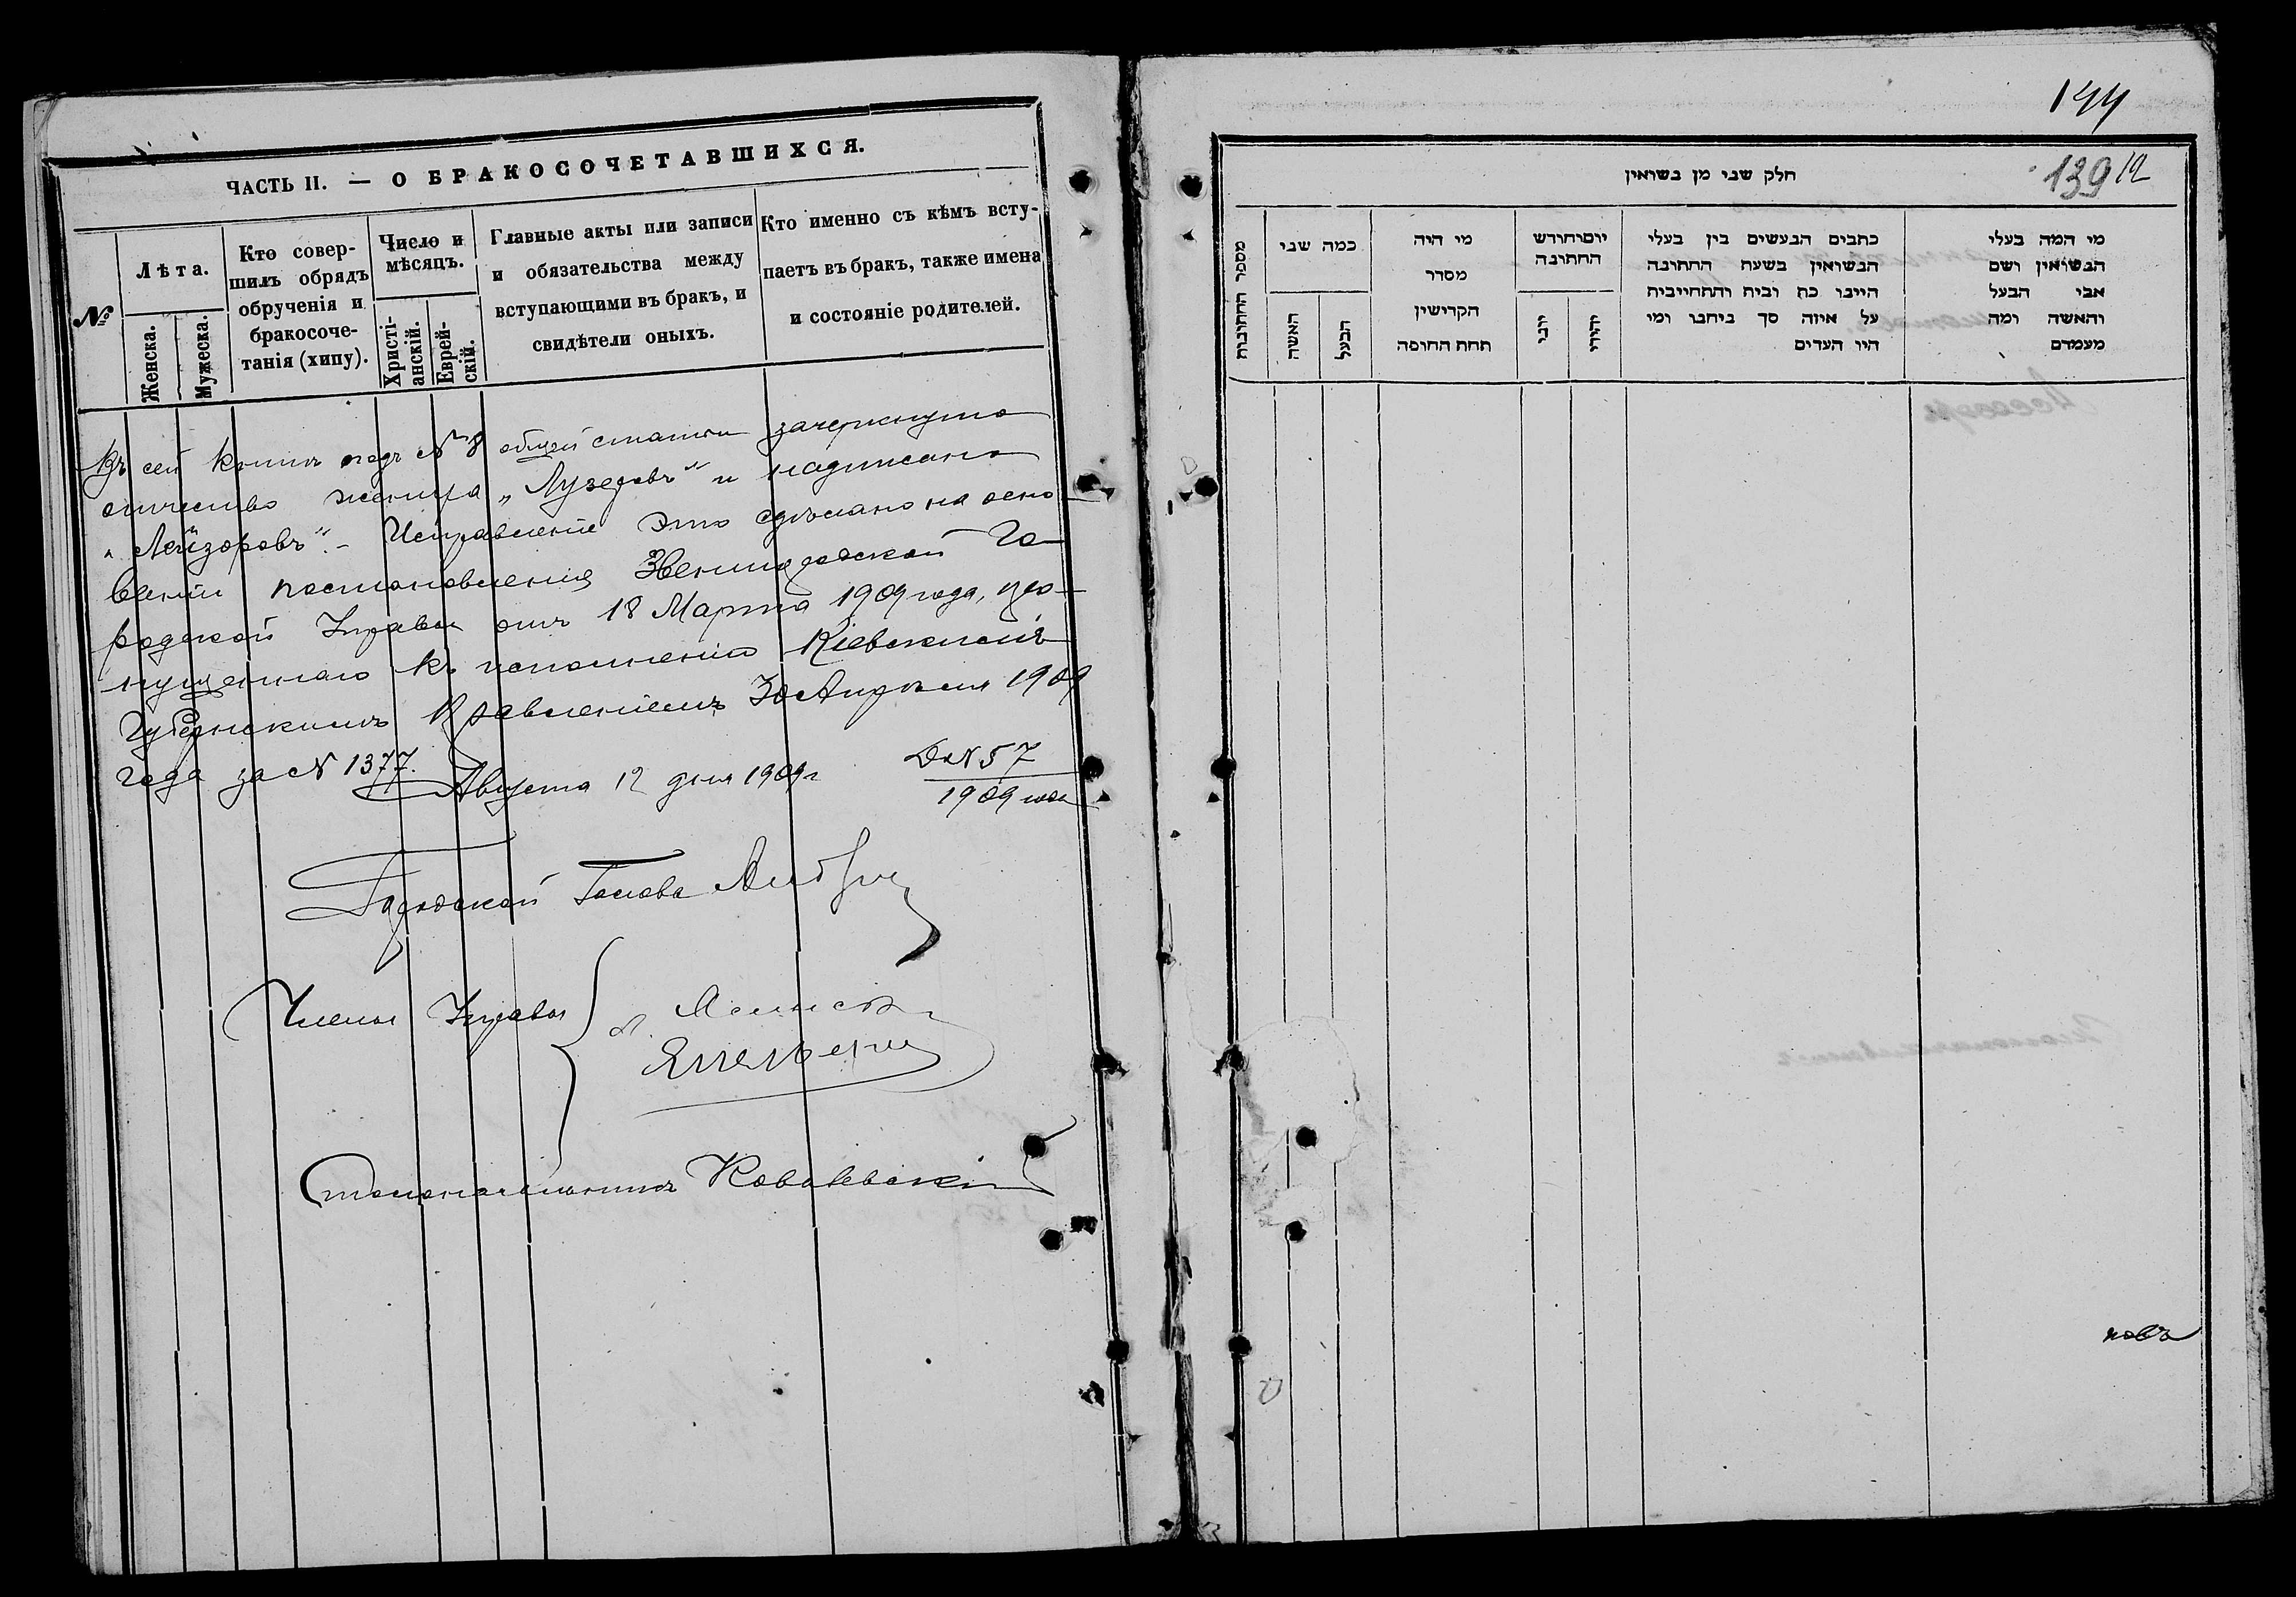 ЧАСТЬ II. — О БРАКОСОЧЕТАВШИХСЯ.
№
Лѣта.
Женска.
Мужеска.
Кто совер-
шилъ обрядъ
обрученія и
бракосоче-
танія (хипу).
Число и
мѣсяцъ.
Христі-
анскій.
Еврей-
скій.
Главные акты или записи
и обязательства между
вступающими въ бракъ, и
свидѣтели оныхъ.
Кто именно съ кѣмъ всту-
паетъ въ бракъ, также имена
и состояніе родителей.
Въ сей книгѣ подъ № 8 общей статьи зачеркнуто
отчество жениха „Лузеровъ" и надписано
„Лейзоровъ". - Исправленіе это сдѣлано на осно
ваніи постановленія Звенигородской Го
родской Управы отъ 18 Марта 1909 года, про-
пущеннаго къ исполненію Кіевскимъ
Губернскимъ Правленіемъ 30 Апрѣля 1909
года за № 1377.
Августа 12 дня 1909 г
Д № 57
1909 года
Городской Голова
Члены Управы
Столоначальникъ Ковалевскій
144
139
חלק שני מן נשואין
מספר החתונות
כמה שני
האשה
הבעל
מי היה
מסדר
הקדישין
תחת החופה
יום וחודש
החתונה
יוני
יהודי
כתבים הנעשים בין בעלי
הנשואין בשעת החתונה
היינו כת וביח והתחייבית
על איזה סך ביחנו ומי
היו העדים
מי המה בעלי
הנשואין ושם
אבי הבעל
והאשה ומה
מעמדם
ковъ